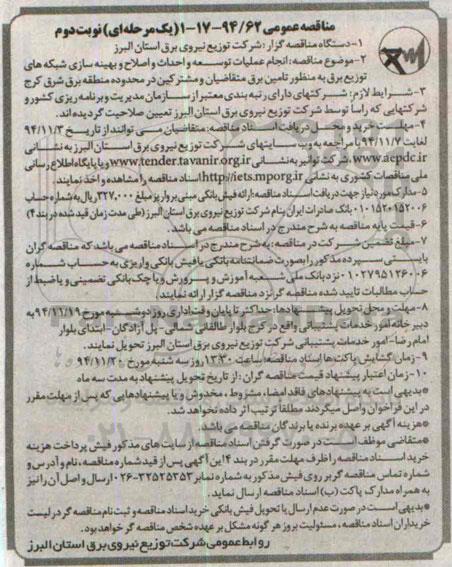 مناقصه عمومی ۹۴/۶۲-۱۷-۱ (یک مرحله‌ای) نوبت دوم
۱-دستگاه مناقصه گزار: شرکت توزیع نیروی برق استان البرز
۲-موضوع مناقصه: انجام عملیات توسعه و احداث و اصلاح و بهینه سازی شبکه های
توزیع برق به منظور تامین برق متقاضیان و مشترکین در محدوده منطقه برق شرق کرج
۳-شرایط لازم: شرکتهای دارای رتبه بندی معتبر از سازمان مدیریت و برنامه ریزی کشور و
شرکتهایی که راسا توسط شرکت توزیع نیروی برق استان البرز تعیین صلاحیت گردیده اند.
۴-مهلت خرید و محل دریافت اسناد مناقصه: متقاضیان می توانند از تاریخ ۹۴/۱۱/۳
لغایت ۹۴/۱۱/۷ با مراجعه به وب سایتهای شرکت توزیع نیروی برق استان البرز به نشانی
www.aepdc.ir، شرکت توانیر به نشانی www.tender.tavanir.org.ir و یا پایگاه اطلاع رسانی
ملی مناقصات کشوری به نشانی http://iets.mporg.ir اسناد مناقصه را مشاهده و اخذ نمایند.
۵-مدارک مورد نیاز جهت دریافت اسناد مناقصه: ارائه فیش بانکی مبنی بر واریز مبلغ ۳۲۷,۰۰۰ ریال به شماره حساب
۰۱۰۱۵۲۰۱۵۲۰۰۶ بانک صادرات ایران بنام شرکت توزیع نیروی برق استان البرز (طی مدت زمان قید شده در بند ۴)
۶-قیمت پایه مناقصه به شرح مندرج در اسناد مناقصه می باشد.
۷-مبلغ تضمین شرکت در مناقصه: به شرح مندرج در اسناد مناقصه می باشد که مناقصه گران
بایستی سپرده مذکور را بصورت ضمانتنامه بانکی یا فیش بانکی واریزی به حساب شماره
۰۱۰۲۷۹۵۱۲۶۰۰۶ نزد بانک ملی شعبه آموزش و پرورش و یا چک بانکی تضمینی و یا ضبط از
حساب مطالبات تایید شده مناقصه گر نزد مناقصه گزار ارائه نمایند.
۸-مهلت و محل تحویل پیشنهادها: حداکثر تا پایان وقت اداری روز دوشنبه مورخ ۹۴/۱۱/۱۹ به
دبیرخانه امور خدمات پشتیبانی واقع در کرج بلوار طالقانی شمالی- پل آزادگان- ابتدای بلوار
امام رضا- امور خدمات پشتیبانی شرکت توزیع نیروی برق استان البرز تحویل نمایند.
۹-زمان گشایش پاکت‌ها اسناد مناقصه: ساعت ۱۳:۳۰ روز سه شنبه مورخ ۹۴/۱۱/۲۰
۱۰-زمان اعتبار پیشنهاد قیمت مناقصه گران: از تاریخ تحویل پیشنهاد به مدت سه ماه
*بدیهی است به پیشنهادهای فاقد امضاء، مشروط، مخدوش و یا پیشنهادهایی که پس از مهلت مقرر
در این فراخوان واصل میگردند مطلقا ترتیب اثر داده نخواهد شد.
*هزینه آگهی بر عهده برنده یا برندگان مناقصه می باشد.
*متقاضی موظف است در صورت گرفتن اسناد مناقصه از سایت های مذکور فیش پرداخت هزینه
خرید اسناد مناقصه را ظرف مهلت مقرر در بند ۴ این آگهی پس از قید شماره مناقصه، نام و آدرس و
شماره تماس مناقصه گر بر روی فیش مذکور به شماره نمابر ۳۲۵۲۵۳۵۳-۰۲۶ ارسال و اصل آن را نیز
به همراه مدارک پاکت (ب) اسناد مناقصه ارسال نماید.
*بدیهی است در صورت عدم ارسال یا تحویل فیش بانکی خرید اسناد مناقصه و ثبت نام مناقصه گر در لیست
خریداران اسناد مناقصه، مسئولیت بروز هر گونه مشکل بر عهده شخص مناقصه گر خواهد بود.
روابط عمومی شرکت توزیع نیروی برق استان البرز